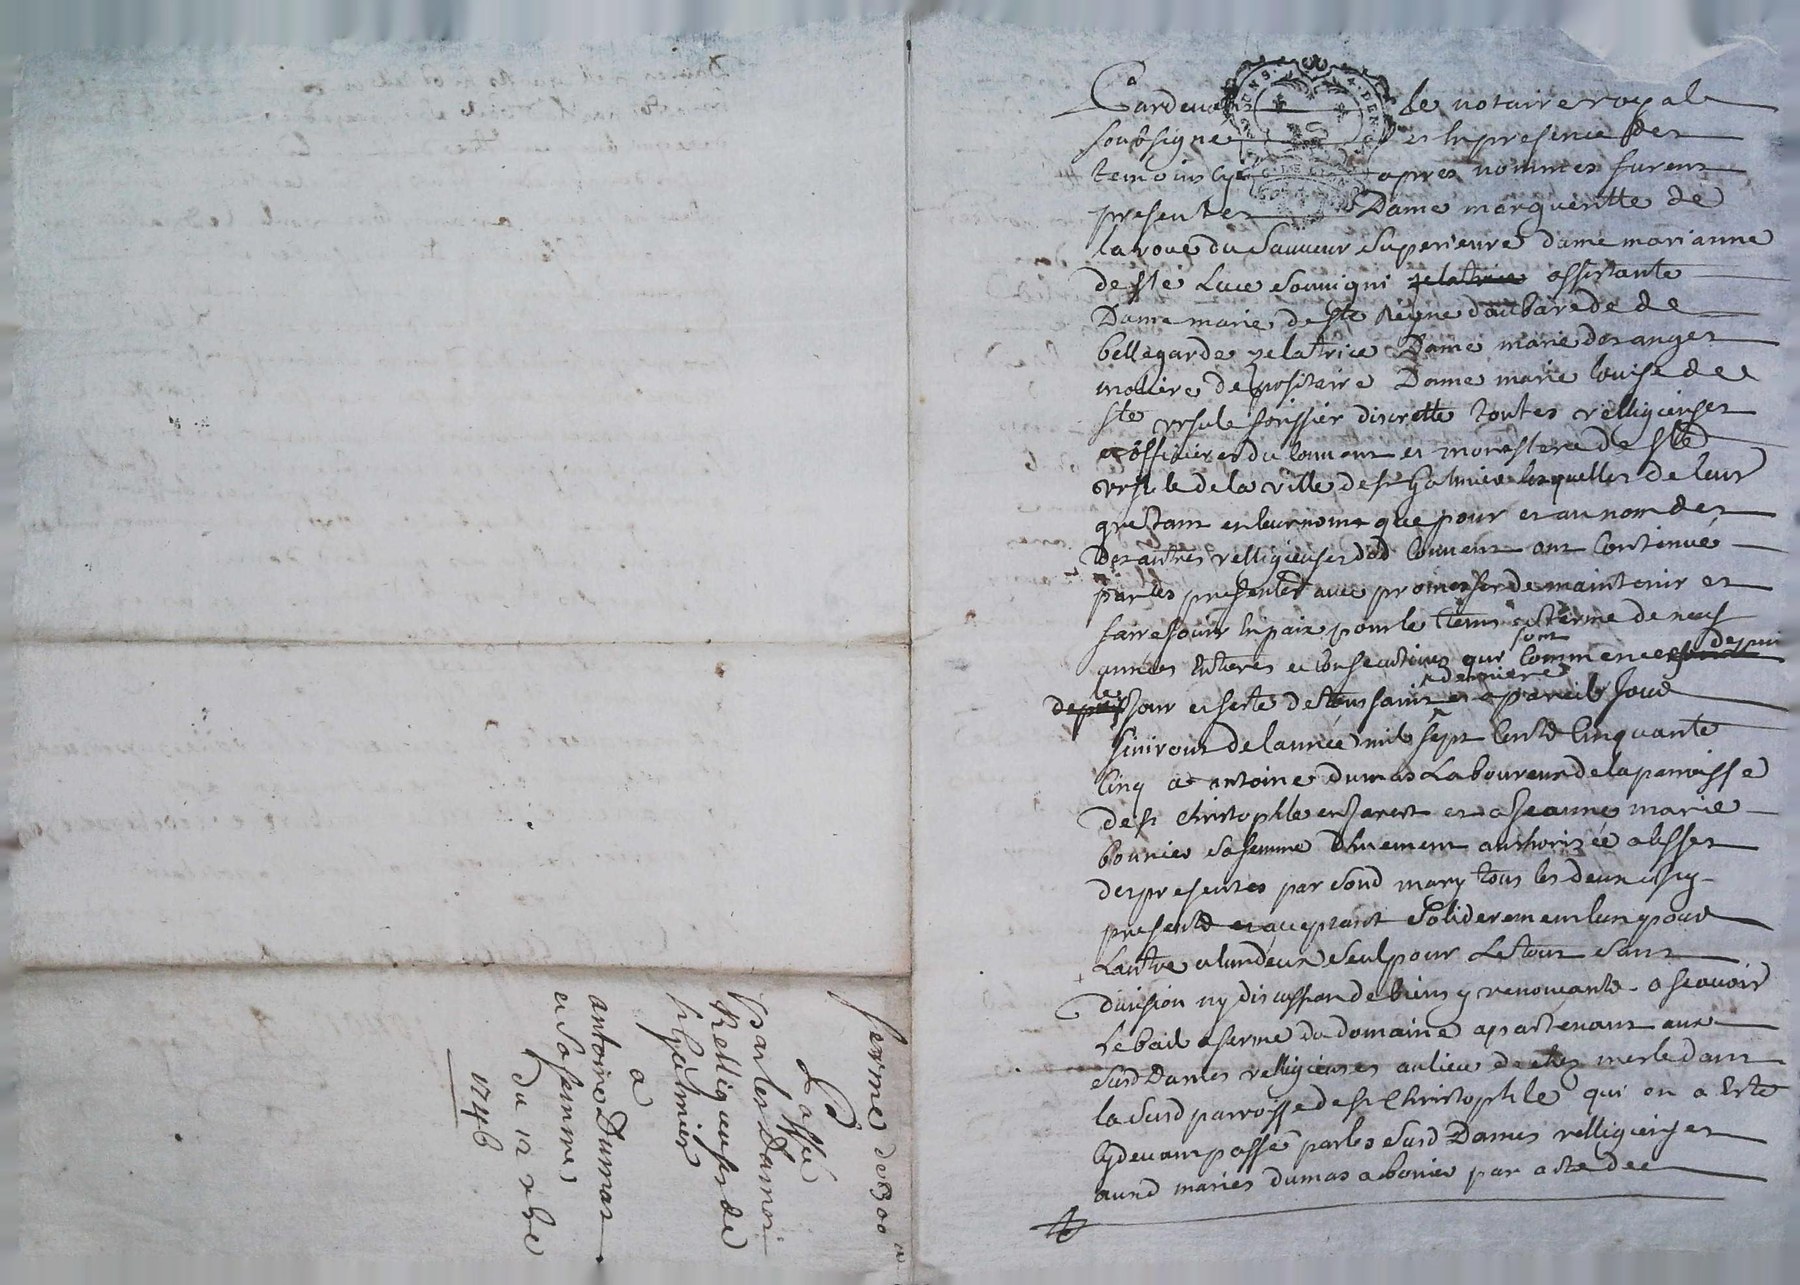 Pardevant le notaire royal
soubsigné et en presence des
temoins cy apres nommes furent
presentes Dame margueritte de
la roue du Sauueur Superieure dame marianne
de ste Luce Souuigni zelatrice assistante
Dame marie de ste Reyne daubarede de
bellegarde zelatrice Dame marie des anges
moliere depositaire Dame marie louise de
ste ursule forissier discrette toutes relligieuses
et officieres du couuent et monastere de Ste
ursule de la ville de st Galmier lesquelles de leur
gré tant en leur nom que pour et au nom des
des autres relligieuses dud couuent ont continué
par les presentes auec promesse de maintenir et
faire jouir en paix pour le tems et terme de neuf
années entieres et consecutiues qui sont commencés depuis
depuis les jour et feste de toussaint derniere et a pareil jour
finiront de lannée mil sept cents cinquante
cinq a antoine dumas Laboureur de la parroisse
de st Christophle en Jarest et a Jeanne marie
bonier sa femme duement authorizée a leffet
des presentes par sond mary tous les deux icy
presents et acceptant Soliderement lun pour
Lautre et lun deux seul pour Le tout sans
diuision ny discussion de biens y renoncants a scauoir
Le bail a ferme du domaine apartenant aux
Susd Dames relligieuses au lieu de chez merle dans
la Susd parroisse de st Christophle qui en a esté
cy deuant passé par les Susd Dames relligieuses
aux d mariés dumas et bonier par acte de
ferme de 300 #
Passée
Par les Dames
Relligieuses de
st Galmier
a
antoine Dumas
et Sa femme
du 12 xbre
1746